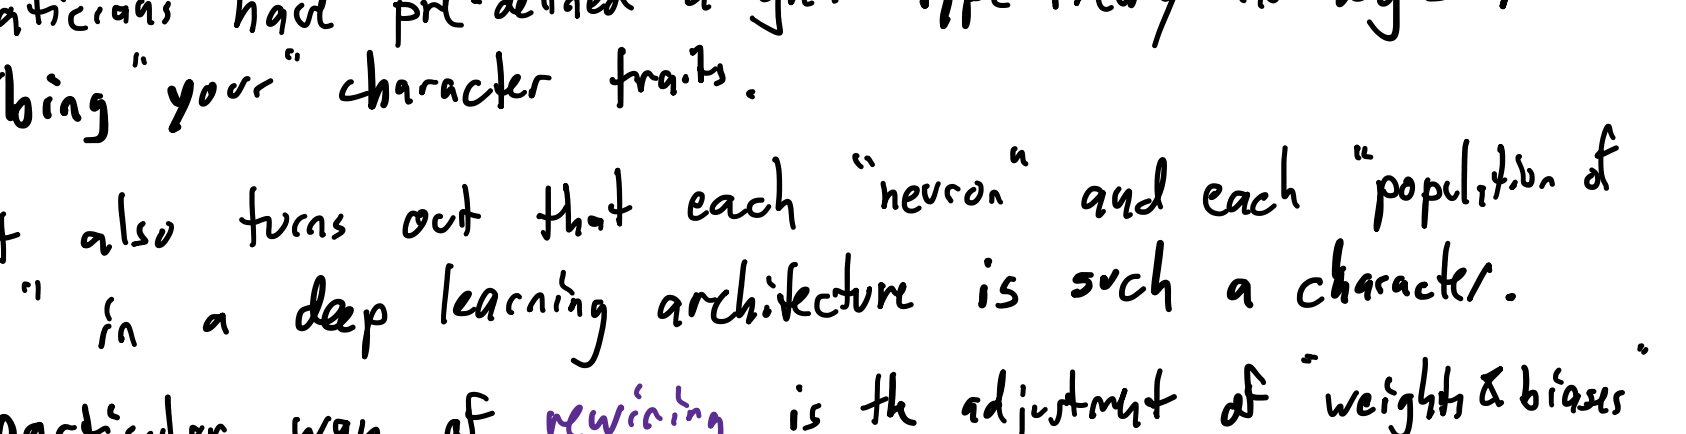 have pre-defined a
bing "your" character traits.
also turns out that each "neuron" and each "population of
" in a deep learning architecture is such a character.
particular way of rewiring is the adjustment of "weights & biases"